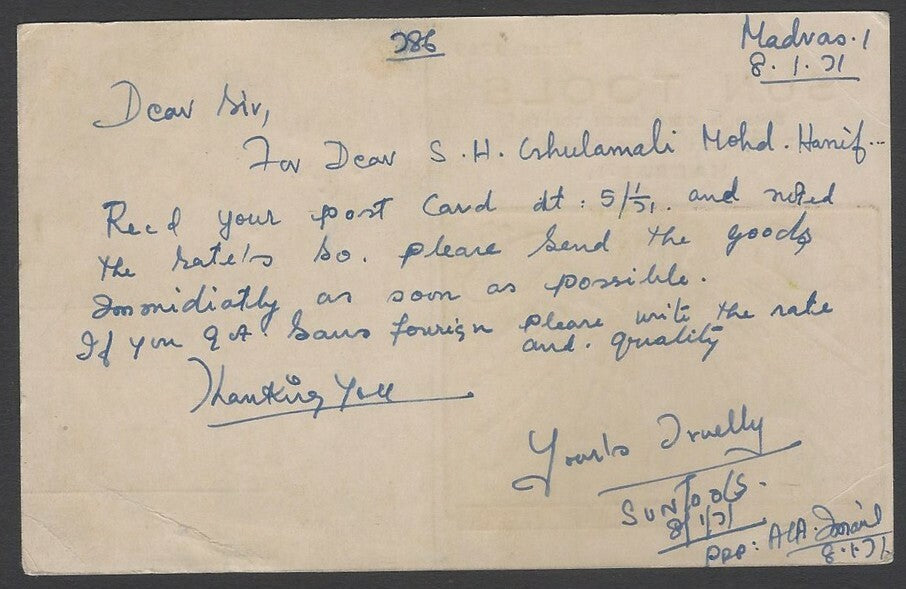 786
Madras.1
8.1.71
Dear Sir,
For Dear S.H. Ghulamali Mohd. Hanif...
Recd your post Card dt: 5/1/71. and noted
the rate's so. please send the goods
Immidiatly as soon as possible.
If you got Saws fourign please write the rate
and. quality
Thanking You
Your's Truelly
SUN TOOLS.
8/1/71
PRP: A.A. Ismail
8.1.71